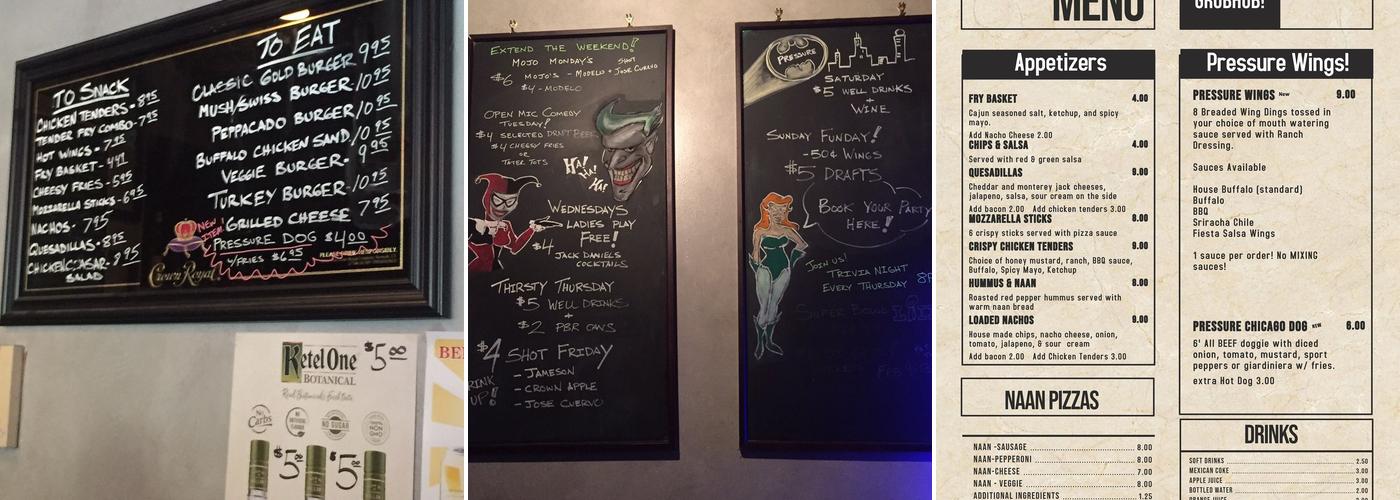 TO SNACK
CHICKEN TENDERS - 8.95
TENDER FRY COMBO - 7.95
HOT WINGS - 7.95
FRY BASKET - 4.41
CHEESY FRIES - 5.95
MOZZARELLA STICKS - 6.95
NACHOS - 7.95
QUESADILLAS - 8.95
CHICKEN CAESAR - 8.95
SALAD
TO EAT
CLASSIC GOLD BURGER 9.95
MUSH/SWISS BURGER - 10.95
PEPPACADO BURGER/10.95
BUFFALO CHICKEN SAND/10.95
VEGGIE BURGER - 9.95
TURKEY BURGER - 10.95
GRILLED CHEESE 7.95
NEW ITEM!
PRESSURE DOG $4.00
w/FRIES $6.95
Crown Royal
Ketel One
BOTANICAL
$5.00
No Carbs
NO SUGAR
NON GMO
$5.00
$5.00
EXTEND THE WEEKEND!
MOJO MONDAY'S
$6 MOJO'S - MODELO + JOSE CUERVO SHOT
$4 - MODELO
OPEN MIC COMEDY
TUESDAY!
$4 SELECTED DRAFT BEER
$4 CHEESY FRIES
OR
TATER TOTS
HA! HA! HA!
WEDNESDAYS
LADIES PLAY
FREE!
$4 JACK DANIELS
COCKTAILS
THIRSTY THURSDAY
$5 WELL DRINKS
+
$2 PBR CANS
$4 SHOT FRIDAY
- JAMESON
- CROWN APPLE
- JOSE CUERVO
RINK
UP!
PRESSURE
SATURDAY
$5 WELL DRINKS
+
WINE
SUNDAY FUNDAY!
- 50¢ WINGS
$5 DRAFTS
BOOK YOUR PARTY
HERE!
JOIN US!
TRIVIA NIGHT
EVERY THURSDAY 8P
SUPER BOWL LII
MENU
GRUBHUB!
Appetizers
FRY BASKET 4.00
Cajun seasoned salt, ketchup, and spicy
mayo.
Add Nacho Cheese 2.00
CHIPS & SALSA 4.00
Served with red & green salsa
QUESADILLAS 9.00
Cheddar and monterey jack cheeses,
jalapeno, salsa, sour cream on the side
Add bacon 2.00 Add chicken tenders 3.00
MOZZARELLA STICKS 8.00
6 crispy sticks served with pizza sauce
CRISPY CHICKEN TENDERS 9.00
Choice of honey mustard, ranch, BBQ sauce,
Buffalo, Spicy Mayo, Ketchup
HUMMUS & NAAN 8.00
Roasted red pepper hummus served with
warm naan bread
LOADED NACHOS 9.00
House made chips, nacho cheese, onion,
tomato, jalapeno, & sour cream
Add bacon 2.00 Add Chicken Tenders 3.00
NAAN PIZZAS
NAAN -SAUSAGE 8.00
NAAN-PEPPERONI 8.00
NAAN-CHEESE 7.00
NAAN - VEGGIE 8.00
ADDITIONAL INGREDIENTS 1.25
Pressure Wings!
PRESSURE WINGS New 9.00
8 Breaded Wing Dings tossed in
your choice of mouth watering
sauce served with Ranch
Dressing.
Sauces Available
House Buffalo (standard)
Buffalo
BBQ
Sriracha Chile
Fiesta Salsa Wings
1 sauce per order! No MIXING
sauces!
PRESSURE CHICAGO DOG NEW 6.00
6' All BEEF doggie with diced
onion, tomato, mustard, sport
peppers or giardiniera w/ fries.
extra Hot Dog 3.00
DRINKS
SOFT DRINKS 2.50
MEXICAN COKE 3.00
APPLE JUICE 3.00
BOTTLED WATER 2.00